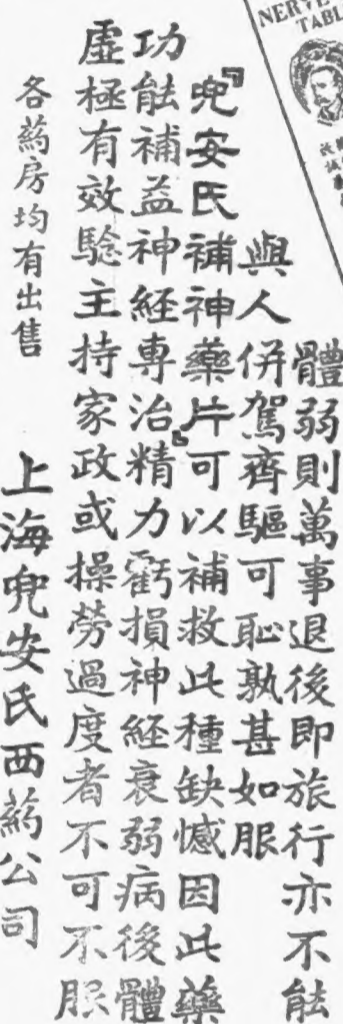 體弱則萬事退後即旅行亦不能
與人併駕齊驅可恥孰甚如服
『兜安氏補神藥片』可以補救此種缺憾因此藥
功能補益神經專治精力虧損神經衰弱病後體
虛極有效驗主持家政或操勞過度者不可不服
各葯房均有出售
上海兜安氏西葯公司
NERVE
TABL